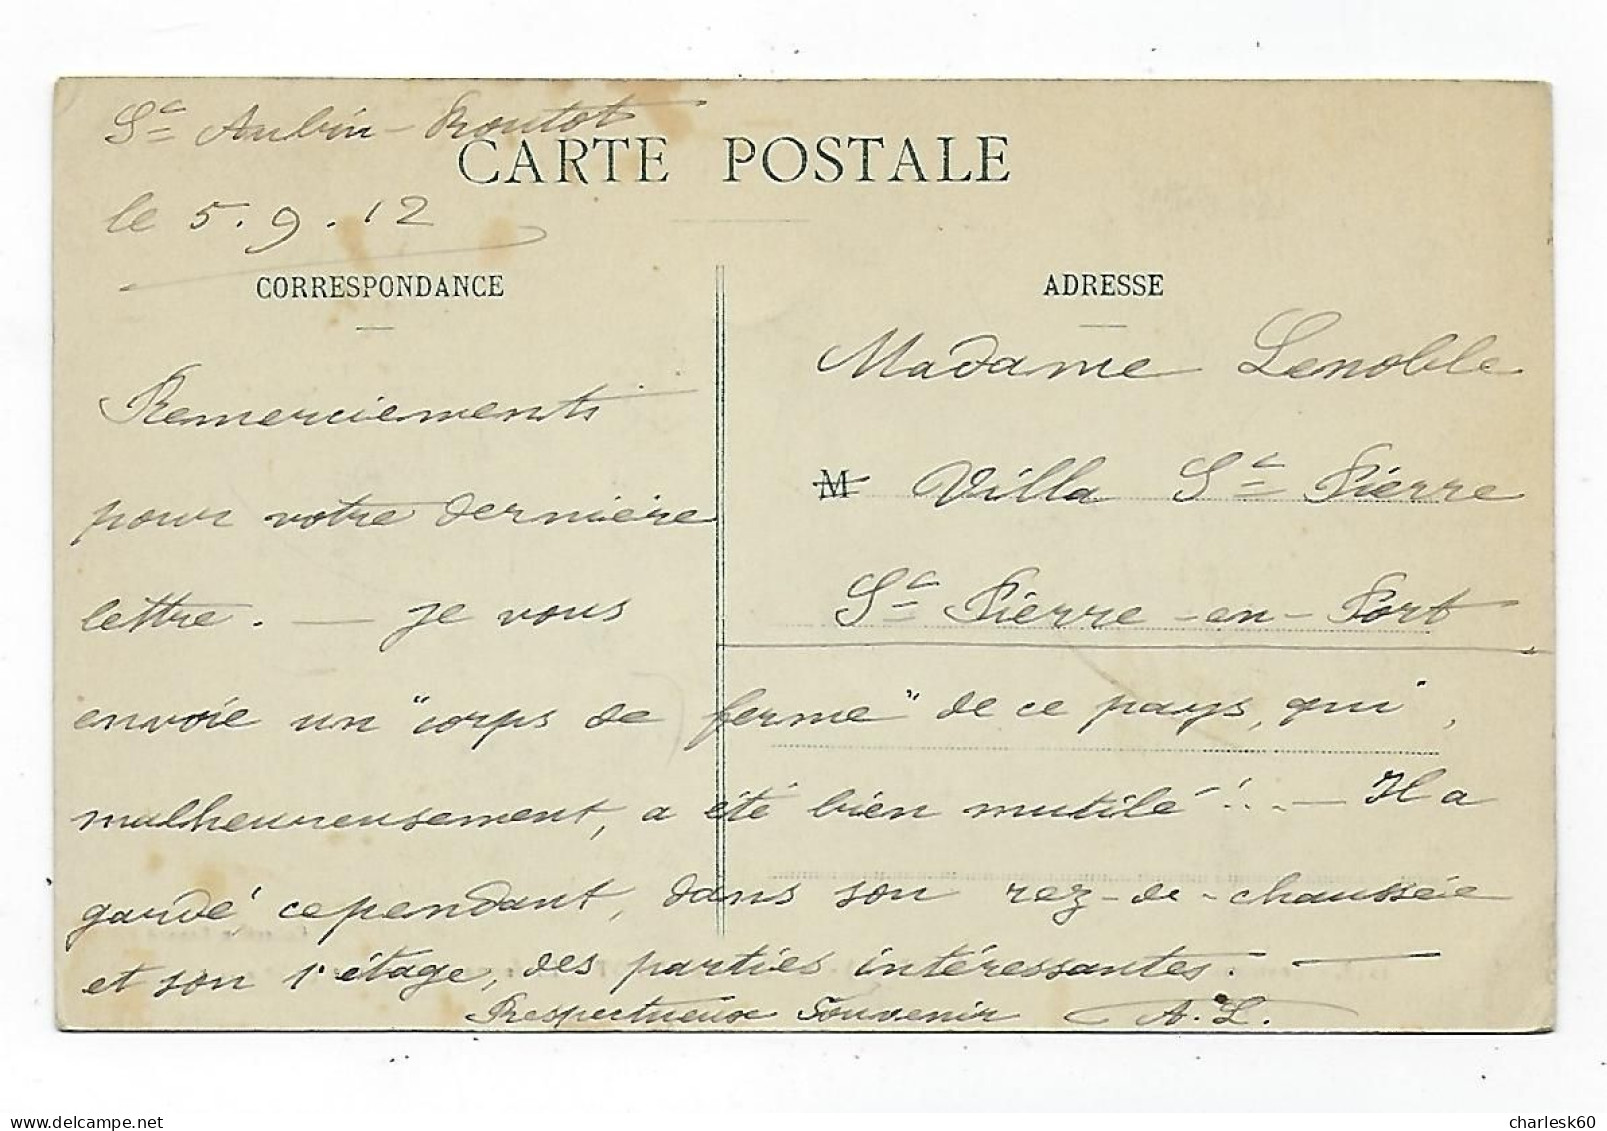 St Aubin-Routot
CARTE POSTALE
le 5.9.12
CORRESPONDANCE
Remerciements
pour votre dernière
lettre. — je vous
ADRESSE
Madame Lenoble
M Villa St Pierre
St Pierre-en-Port
envoie un "corps de ferme" de ce pays, qui,
malheureusement, a été bien mutilé!.. — Il a
gardé cependant, dans son rez-de-chaussée
et son 1er étage, des parties intéressantes. —
Respectueux Souvenir A.L.
delcampe.net
charlesk60